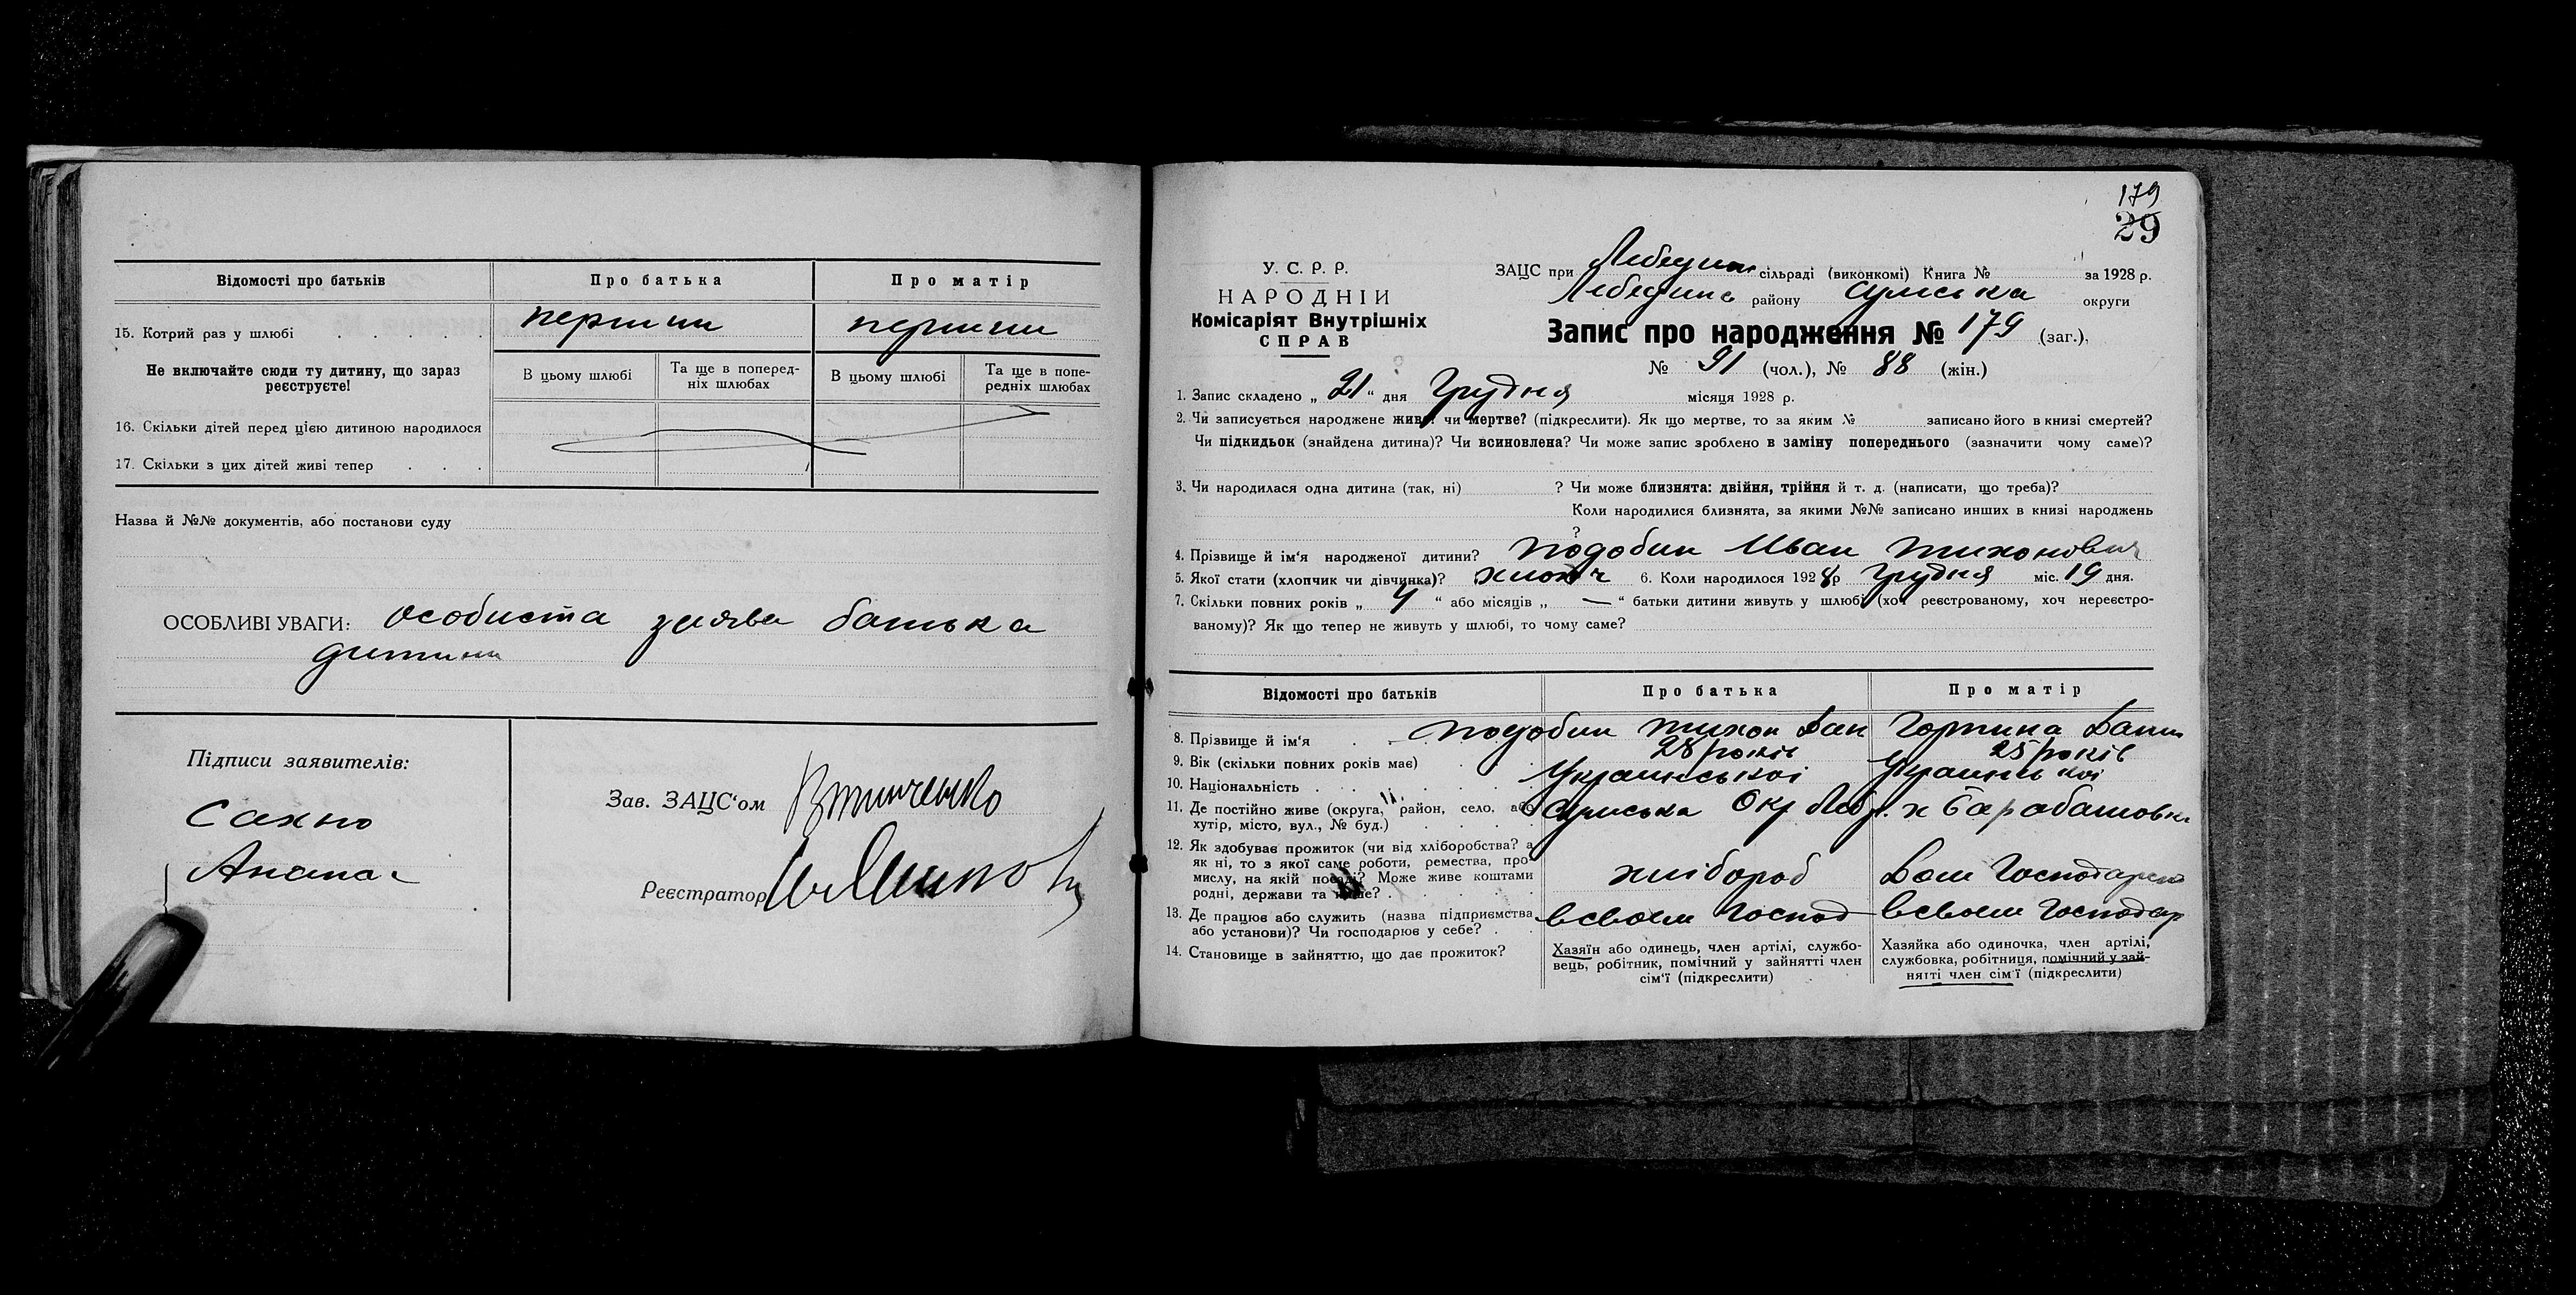 Відомості про батьків Про батька Про матір
15. Котрий раз у шлюбі перший перший
Не включайте сюди ту дитину, що зараз реєструєте!
В цьому шлюбі Та ще в поперед-
ніх шлюбах В цьому шлюбі Та ще в попе-
редніх шлюбах
16. Скільки дітей перед цією дитиною народилося
17. Скільки з цих дітей живі тепер
Назва й №№ документів, або постанови суду
ОСОБЛИВІ УВАГИ: особиста заява батька
дитини
Підписи заявителів:
Сахно
Зав. ЗАЦС'ом
Реєстратор
179
29
У. С. Р. Р.
НАРОДНІЙ
Комісаріят Внутрішніх
СПРАВ
ЗАЦС при Лебедин сільраді (виконкомі) Книга № за 1928 р.
Лебединс району Сумська округи
Запис про народження № 179 (заг.),
№ 91 (чол.), № 88 (жін.)
1. Запис складено „ 21 “ дня Грудня місяця 1928 р.
2. Чи записується народжене живе чи мертве? (підкреслити). Як що мертве, то за яким № записано його в книзі смертей?
Чи підкидьок (знайдена дитина)? Чи всиновлена? Чи може запис зроблено в заміну попереднього (зазначити чому саме)?
3. Чи народилася одна дитина (так, ні) ? Чи може близнята: двійня, трійня й т. д. (написати, що треба)?
Коли народилися близнята, за якими №№ записано инших в книзі народжень
?
4. Прізвище й ім'я народженої дитини? Подобин Иван Тихонович
5. Якої стати (хлопчик чи дівчинка)? хлопч 6. Коли народилося 1928 р Грудня міс. 19 дня.
7. Скільки повних років „ 4 “ або місяців „ — “ батьки дитини живуть у шлюбі (хоч реєстрованому, хоч нереєстро-
ваному)? Як що тепер не живуть у шлюбі, то чому саме?
Відомості про батьків Про батька Про матір
8. Прізвище й ім'я Подобин Тихон Дан Горпина Дани
9. Вік (скільки повних років має) 28 років 25 років
10. Національність Украинськоі Украинськоі
11. Де постійно живе (округа, район, село, або
хутір, місто, вул., № буд.) Сумська Окр Леб р. х Барабашовка
12. Як здобуває прожиток (чи від хліборобства? а
як ні, то з якої саме роботи, ремества, про-
мислу, на якій посаді? Може живе коштами
родні, держави та инше? хлібороб Дом Господарка
13. Де працює або служить (назва підприємства
або установи)? Чи господарює у себе? всвоем Господ всвоем Господар
14. Становище в зайняттю, що дає прожиток?
Хазяїн або одинець, член артілі, службо-
вець, робітник, помічний у зайнятті член
сім'ї (підкреслити)
Хазяйка або одиночка, член артілі,
службовка, робітниця, помічний у зай-
нятті член сім'ї (підкреслити)